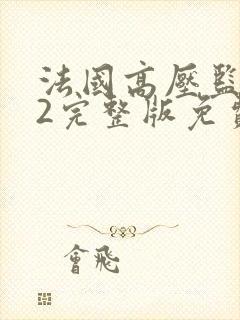 法國高壓監
2完整版免費
會飛